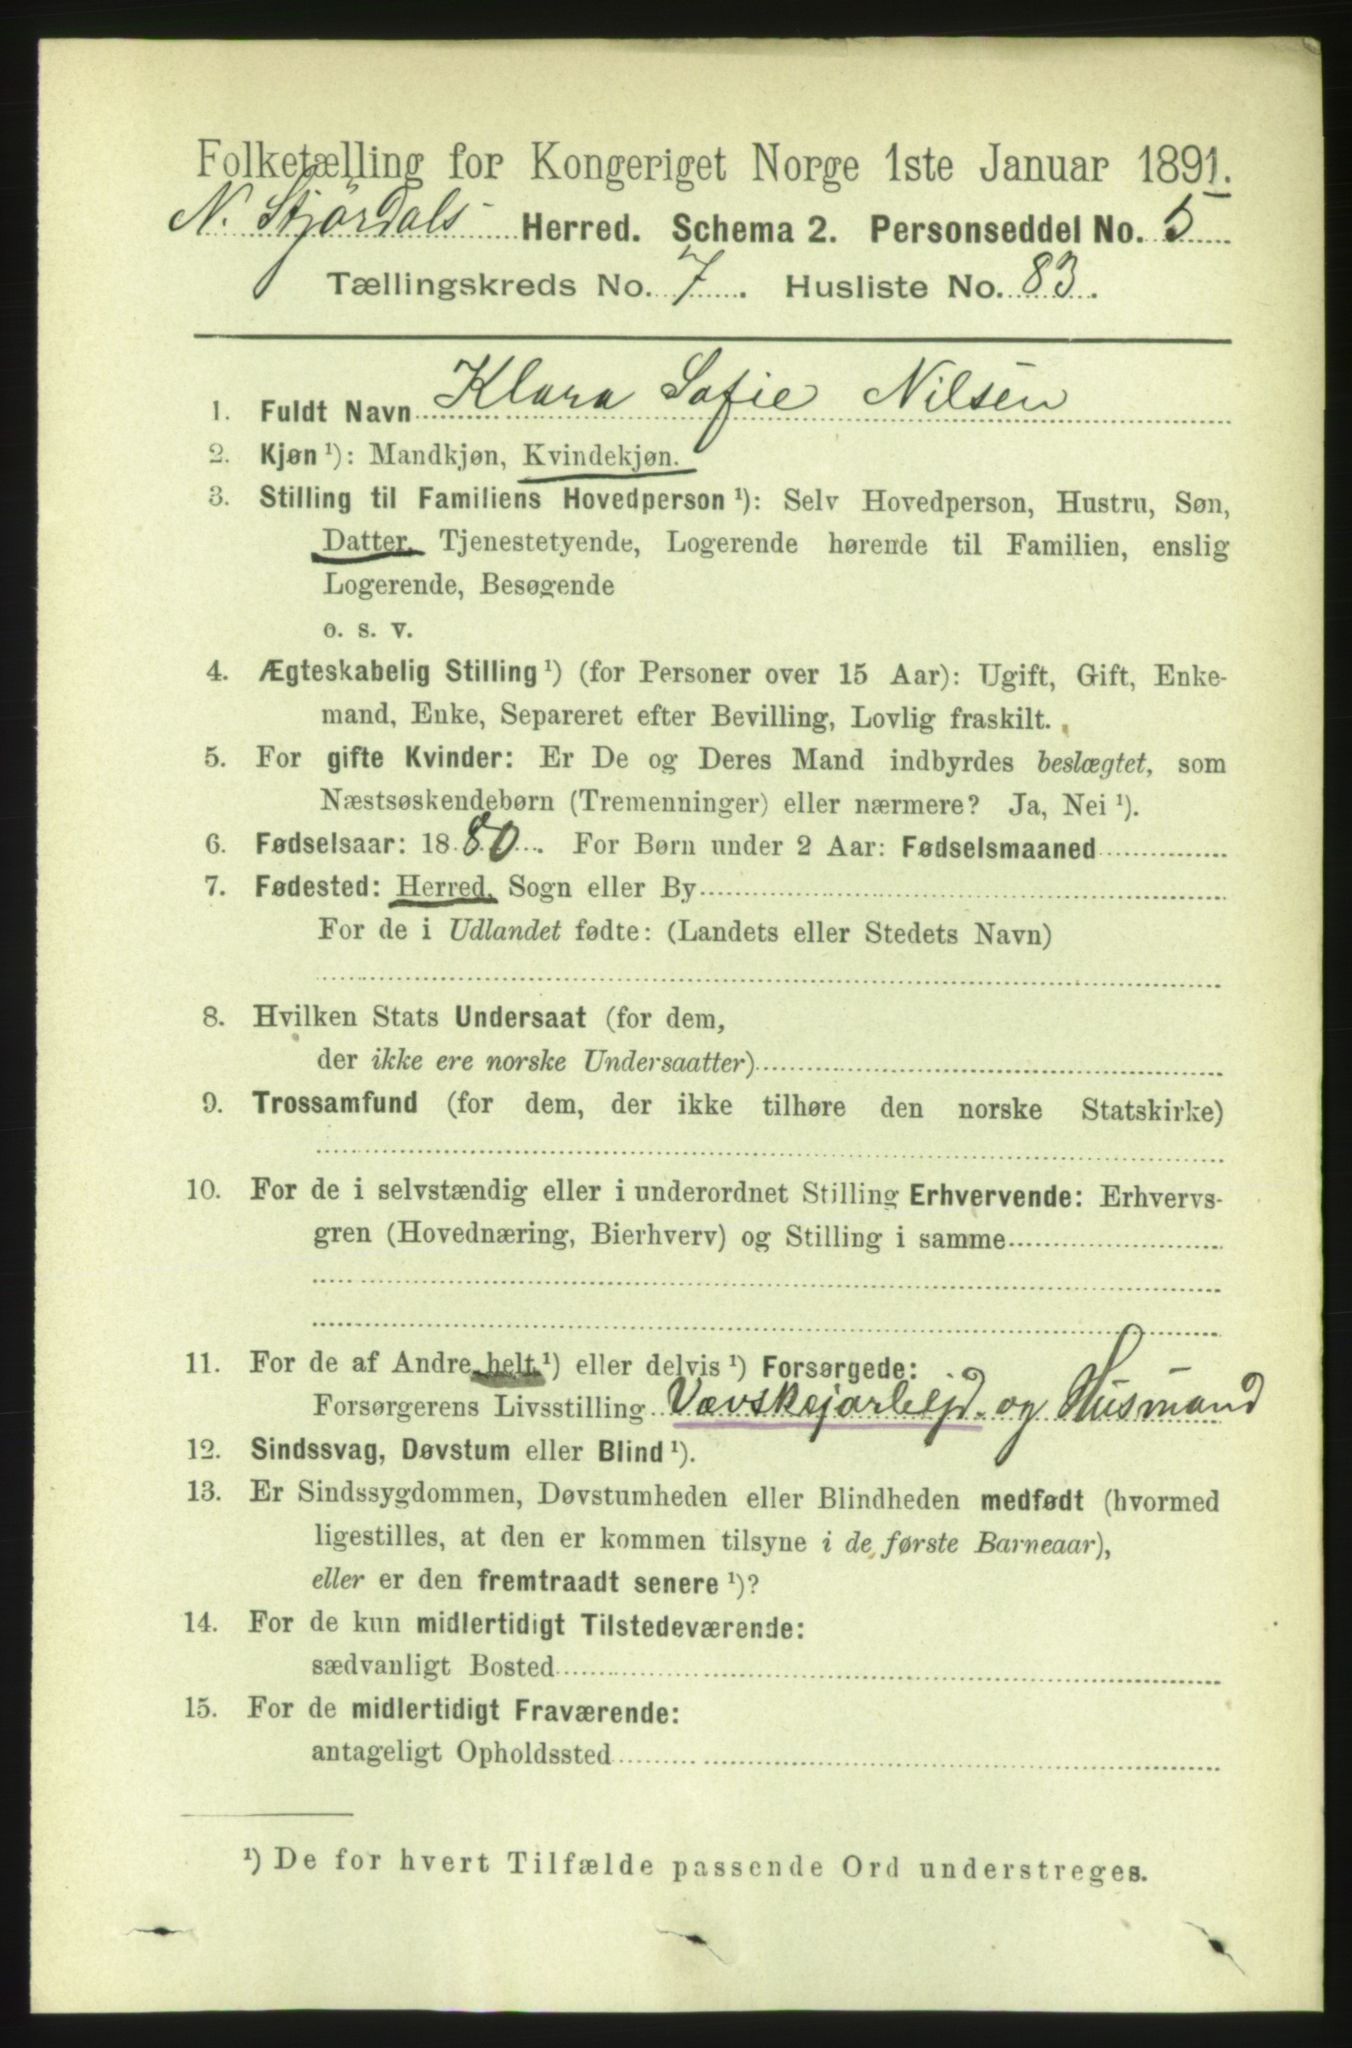 Folketælling for Kongeriget Norge 1ste Januar 1891.
N. Stjørdals Herred. Schema 2. Personseddel No. 5
Tællingskreds No. 7. Husliste No. 83.
1. Fuldt Navn Klara Sofie Nilsen
2. Kjøn ¹): Mandkjøn, Kvindekjøn.
3. Stilling til Familiens Hovedperson ¹): Selv Hovedperson, Hustru, Søn,
Datter, Tjenestetyende, Logerende hørende til Familien, enslig
Logerende, Besøgende
o. s. v.
4. Ægteskabelig Stilling ¹) (for Personer over 15 Aar): Ugift, Gift, Enke-
mand, Enke, Separeret efter Bevilling, Lovlig fraskilt.
5. For gifte Kvinder: Er De og Deres Mand indbyrdes beslægtet, som
Næstsøskendebørn (Tremenninger) eller nærmere? Ja, Nei ¹).
6. Fødselsaar: 1880. For Børn under 2 Aar: Fødselsmaaned
7. Fødested: Herred, Sogn eller By
For de i Udlandet fødte: (Landets eller Stedets Navn)
8. Hvilken Stats Undersaat (for dem,
der ikke ere norske Undersaatter)
9. Trossamfund (for dem, der ikke tilhøre den norske Statskirke)
10. For de i selvstændig eller i underordnet Stilling Erhvervende: Erhvervs-
gren (Hovednæring, Bierhverv) og Stilling i samme
11. For de af Andre helt ¹) eller delvis ¹) Forsørgede:
Forsørgerens Livsstilling og Husmand
12. Sindssvag, Døvstum eller Blind ¹).
13. Er Sindssygdommen, Døvstumheden eller Blindheden medfødt (hvormed
ligestilles, at den er kommen tilsyne i de første Barneaar),
eller er den fremtraadt senere ¹)?
14. For de kun midlertidigt Tilstedeværende:
sædvanligt Bosted
15. For de midlertidigt Fraværende:
antageligt Opholdssted
¹) De for hvert Tilfælde passende Ord understreges.